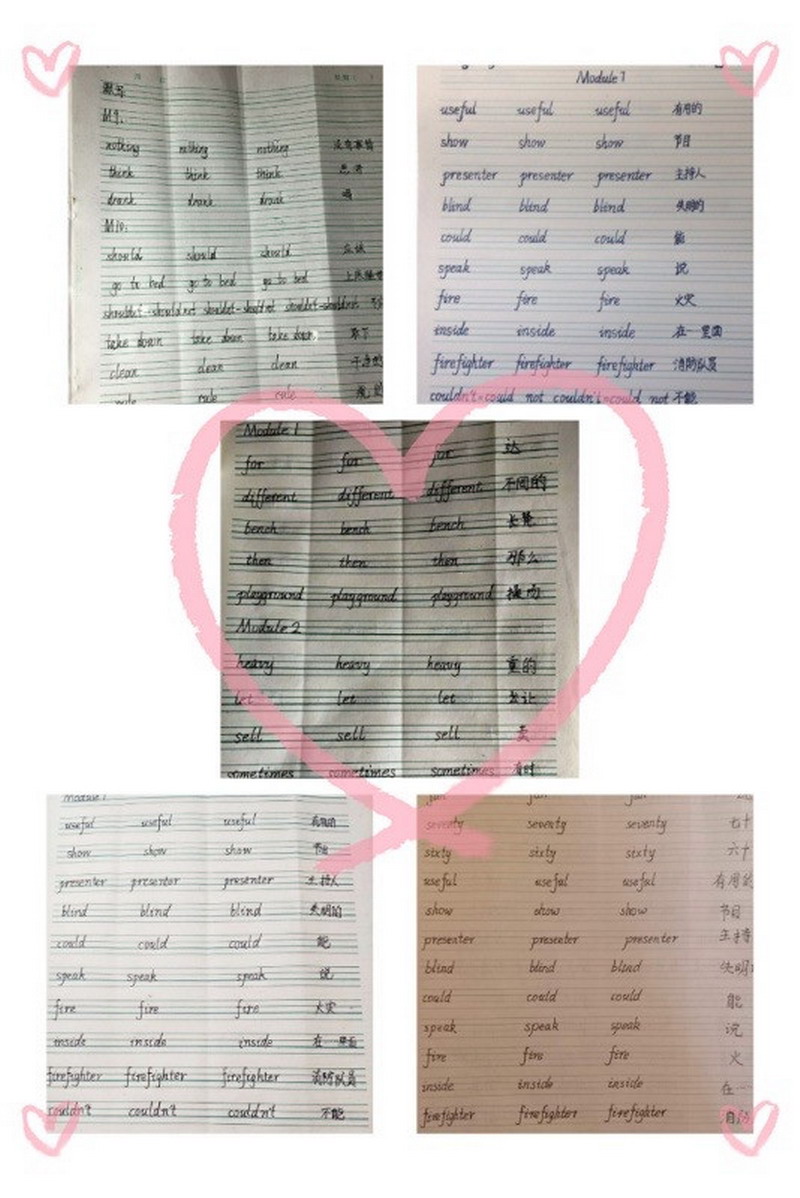 默写
M9.
nothing nothing nothing
think think think 思考
drank drank drank 喝
M10:
should should should 应该
go to bed go to bed go to bed
take down take down take down 取下
clean clean clean
rule rule rule
Module 7
useful useful useful 有用的
show show show 节目
presenter presenter presenter 主持人
blind blind blind 失明的
could could could 能
speak speak speak 说
fire fire fire 火灾
inside inside inside 在…里面
firefighter firefighter firefighter 消防队员
couldn't=could not couldn't=could not 不能
Module 1
for for for 达
different different different 不同的
bench bench bench 长凳
then then then 那么
playground playground playground
Module 2
heavy heavy heavy 重的
let let let 让
sell sell sell 卖
sometimes sometimes sometimes 有时
useful useful useful 有用的
show show show 节目
presenter presenter presenter 主持人
blind blind blind 失明的
could could could 能
speak speak speak 说
fire fire fire 火灾
inside inside inside 在…里面
firefighter firefighter firefighter 消防队员
couldn't couldn't couldn't 不能
seventy seventy seventy 七十
sixty sixty sixty 六十
useful useful useful 有用的
show show show 节目
presenter presenter presenter 主持
blind blind blind 失明
could could could 能
speak speak speak 说
fire fire fire 火
inside inside inside 在
firefighter firefighter firefighter